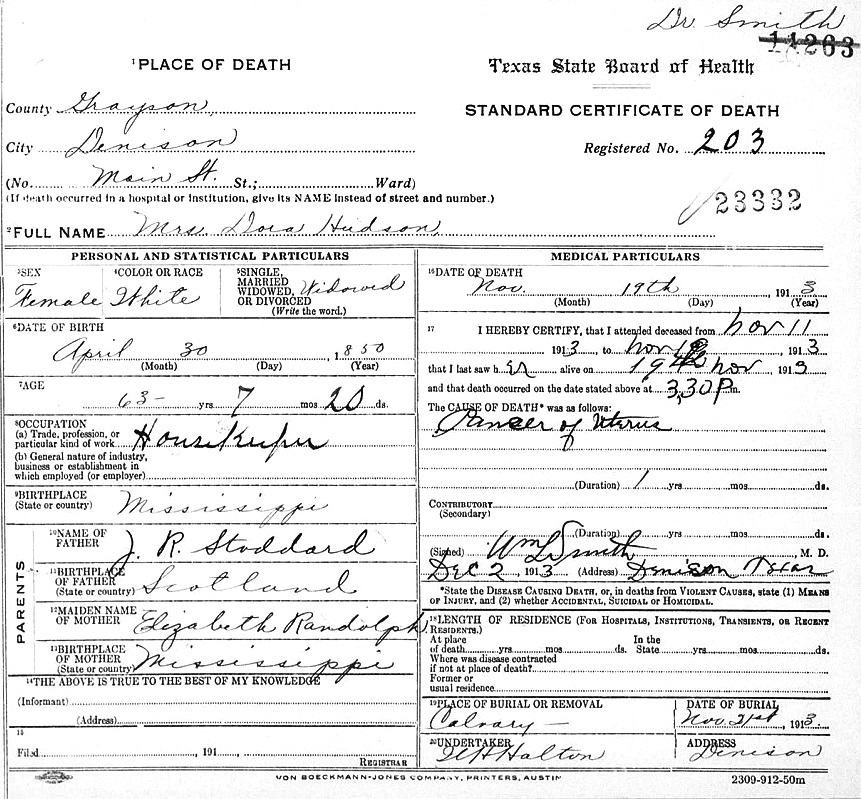 Dr. Smith
11263
¹PLACE OF DEATH
Texas State Board of Health
County Grayson
STANDARD CERTIFICATE OF DEATH
City Denison
Registered No. 203
(No. Main St. St.; Ward)
(If death occurred in a hospital or institution, give its NAME instead of street and number.)
23332
²FULL NAME Mrs. Dora Hudson
PERSONAL AND STATISTICAL PARTICULARS
³SEX Female
⁴COLOR OR RACE White
⁵SINGLE, MARRIED WIDOWED, OR DIVORCED Widowed
(Write the word.)
⁶DATE OF BIRTH
April 30, 1850
(Month) (Day) (Year)
⁷AGE
63 yrs 7 mos 20 ds.
⁸OCCUPATION
(a) Trade, profession, or
particular kind of work House Keeper
(b) General nature of industry,
business or establishment in
which employed (or employer)
⁹BIRTHPLACE
(State or country) Mississippi
PARENTS
¹⁰NAME OF
FATHER J. R. Stoddard
¹¹BIRTHPLACE
OF FATHER
(State or country) Scotland
¹²MAIDEN NAME
OF MOTHER Elizabeth Randolph
¹³BIRTHPLACE
OF MOTHER
(State or country) Mississippi
¹⁴THE ABOVE IS TRUE TO THE BEST OF MY KNOWLEDGE
(Informant)
(Address)
15
Filed , 191
REGISTRAR
MEDICAL PARTICULARS
¹⁶DATE OF DEATH
Nov. 19th, 1913
(Month) (Day) (Year)
17 I HEREBY CERTIFY, that I attended deceased from Nov 11
1913 to Nov 1913
that I last saw her alive on 19 Nov 1913
and that death occurred on the date stated above at 3,30 P m.
The CAUSE OF DEATH* was as follows:
Cancer of Uterus
(Duration) 1 yrs mos ds.
CONTRIBUTORY
(Secondary)
(Duration) yrs mos ds.
(Signed) Wm L Smith, M. D.
Dec 2, 1913 (Address) Denison Texas
*State the DISEASE CAUSING DEATH, or, in deaths from VIOLENT CAUSES, state (1) MEANS
OF INJURY, and (2) whether ACCIDENTAL, SUICIDAL or HOMICIDAL.
¹⁸LENGTH OF RESIDENCE (FOR HOSPITALS, INSTITUTIONS, TRANSIENTS, OR RECENT
RESIDENTS.)
At place In the
of death yrs mos ds. State yrs mos ds.
Where was disease contracted
if not at place of death?
Former or
usual residence
¹⁹PLACE OF BURIAL OR REMOVAL
Calvary
DATE OF BURIAL
Nov. 21st, 1913
²⁰UNDERTAKER
Halton
ADDRESS
Denison
VON BOECKMANN-JONES COMPANY, PRINTERS, AUSTIN
2309-912-50m